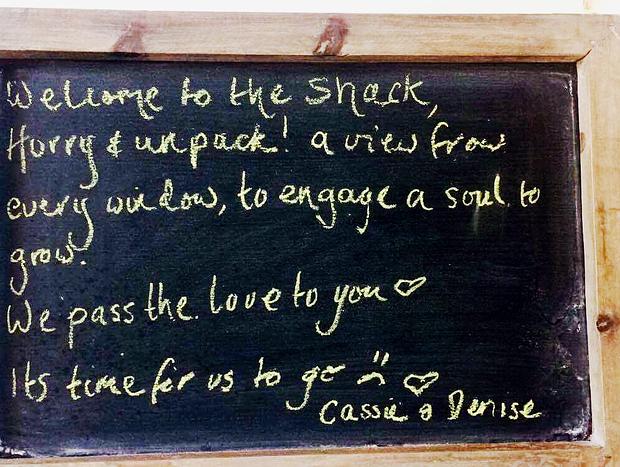 Welcome to the Shack,
Hurry & unpack! a view from
every window, to engage a soul to
grow.
We pass the love to you ♡
Its time for us to go ♡
Cassie & Denise